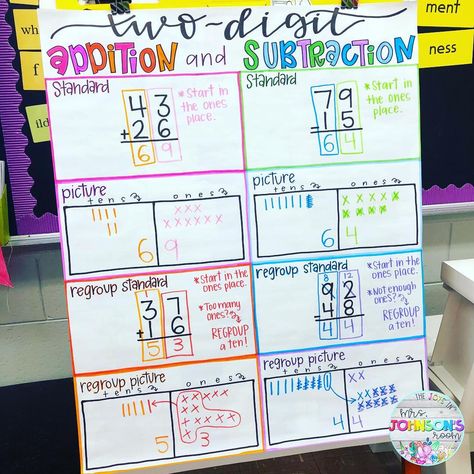 two-digit
ADDITION and SUBTRACTION
Standard
43
+26
69
*Start in
the ones
place.
Standard
79
-15
64
*Start in
the ones
place.
picture
tens ones
6 9
picture
tens ones
6 4
regroup standard
1
37
+16
53
*Start in the
ones place.
*Too many
ones?
REGROUP
a ten!
regroup standard
8 12
92
-48
44
*Start in the
ones place.
*Not enough
ones?
REGROUP
a ten!
regroup picture
tens ones
5 3
regroup picture
tens ones
4 4
ment
ness
THE JOY IN
mrs.
JOHNSON'S
room